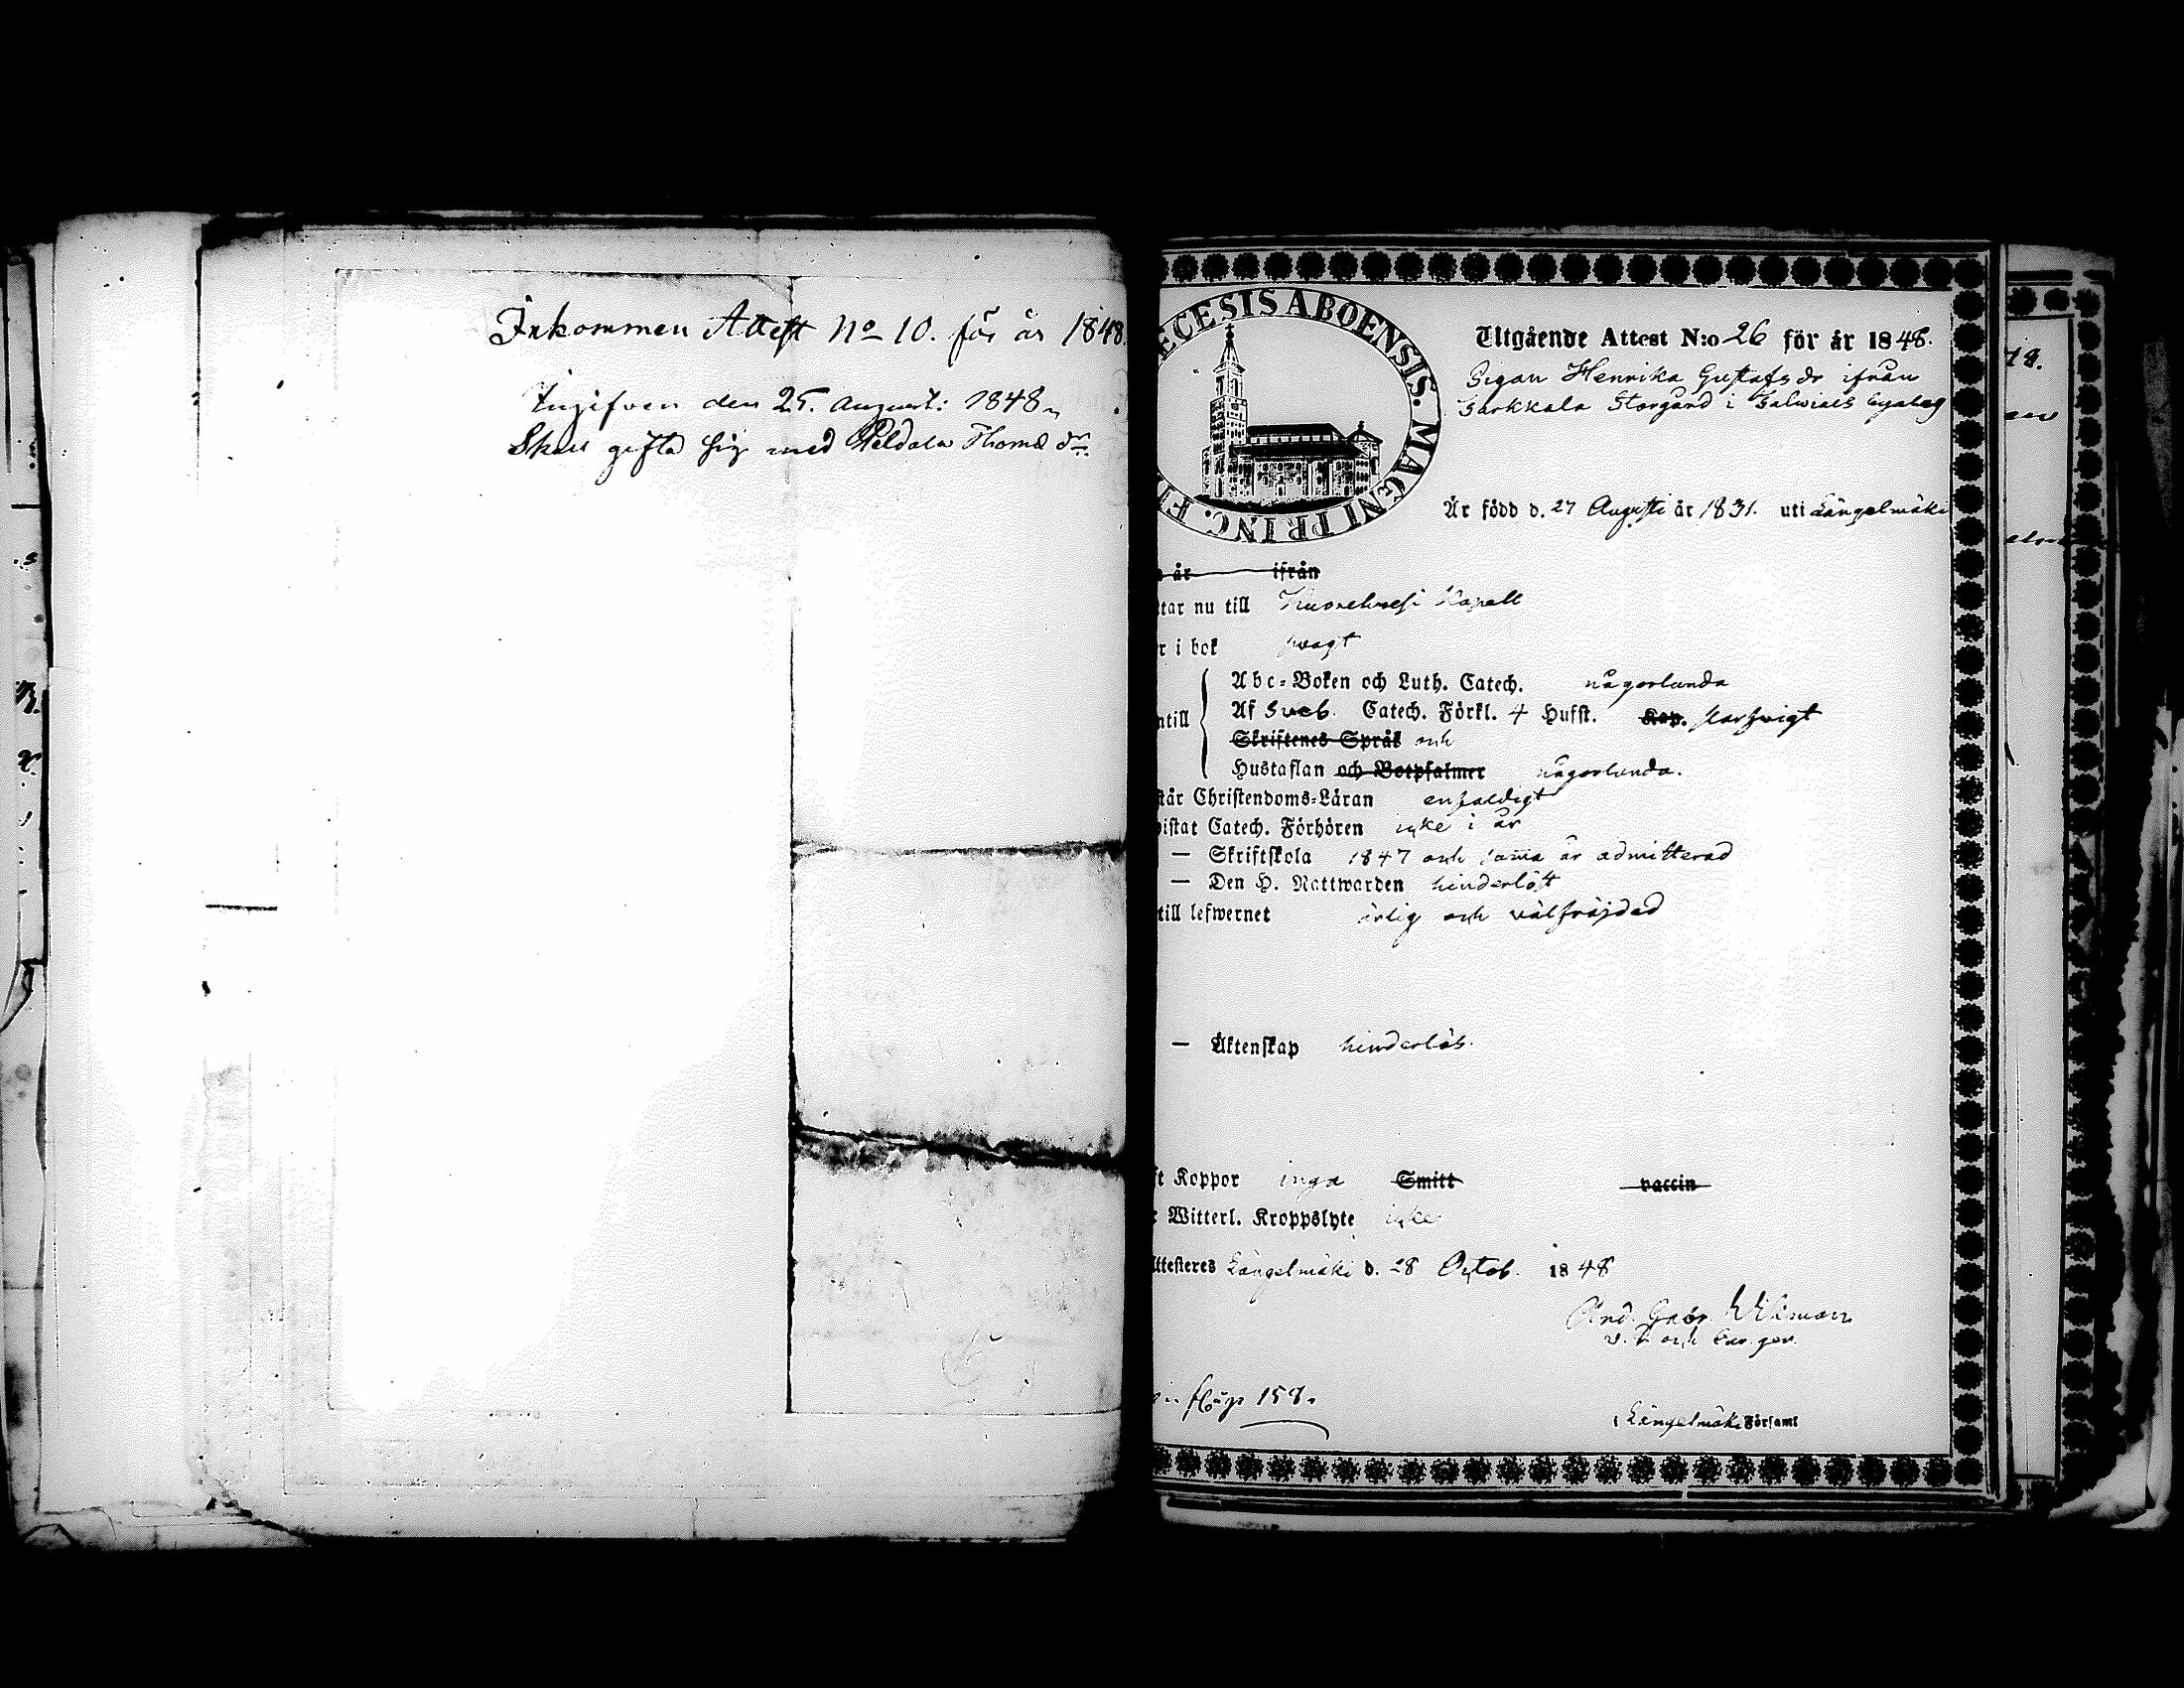 Inkommen Attest No 10. för år 1848.
Ingifven den 25. August: 1848.
Skall gifta sig med Peldola Thomas dr.
ECESIS ABOENSIS. MAGNI PRINC. FI
Utgående Attest N:o 26 för år 1848.
Pigan Henrika Gustafsdr ifrån
Sarkkala Storgård i
Är född d. 27 Augusti år 1831. uti Längelmäki
år ifrån
tar nu till Kuorehvesi Kapell
r i bok svagt
Abc-Boken och Luth. Catech. någorlunda
ntill Af Sveb. Catech. Förkl. 4 Hufst. Kap. förswigt
Skriftenes Språk och
Hustaflan och Botpsalmer någorlunda.
står Christendoms-Läran enfaldigt
vistat Catech. Förhören icke i år
— Skriftskola 1847 och samma år admitterad
— Den H. Nattwarden hinderlöst
till lefwernet ärlig och välfräjdad
— Äktenskap hinderlös.
ft Koppor inga Smitt vaccin
r Witterl. Kroppslyte icke
Attesteres Längelmäki d. 28 Octob. 1848
And. Gabr.
v. P. och
158.
Längelmäki Församl